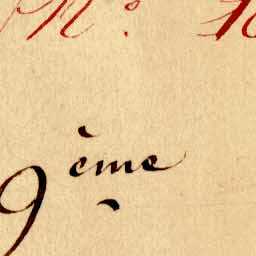 N° 10
9ème